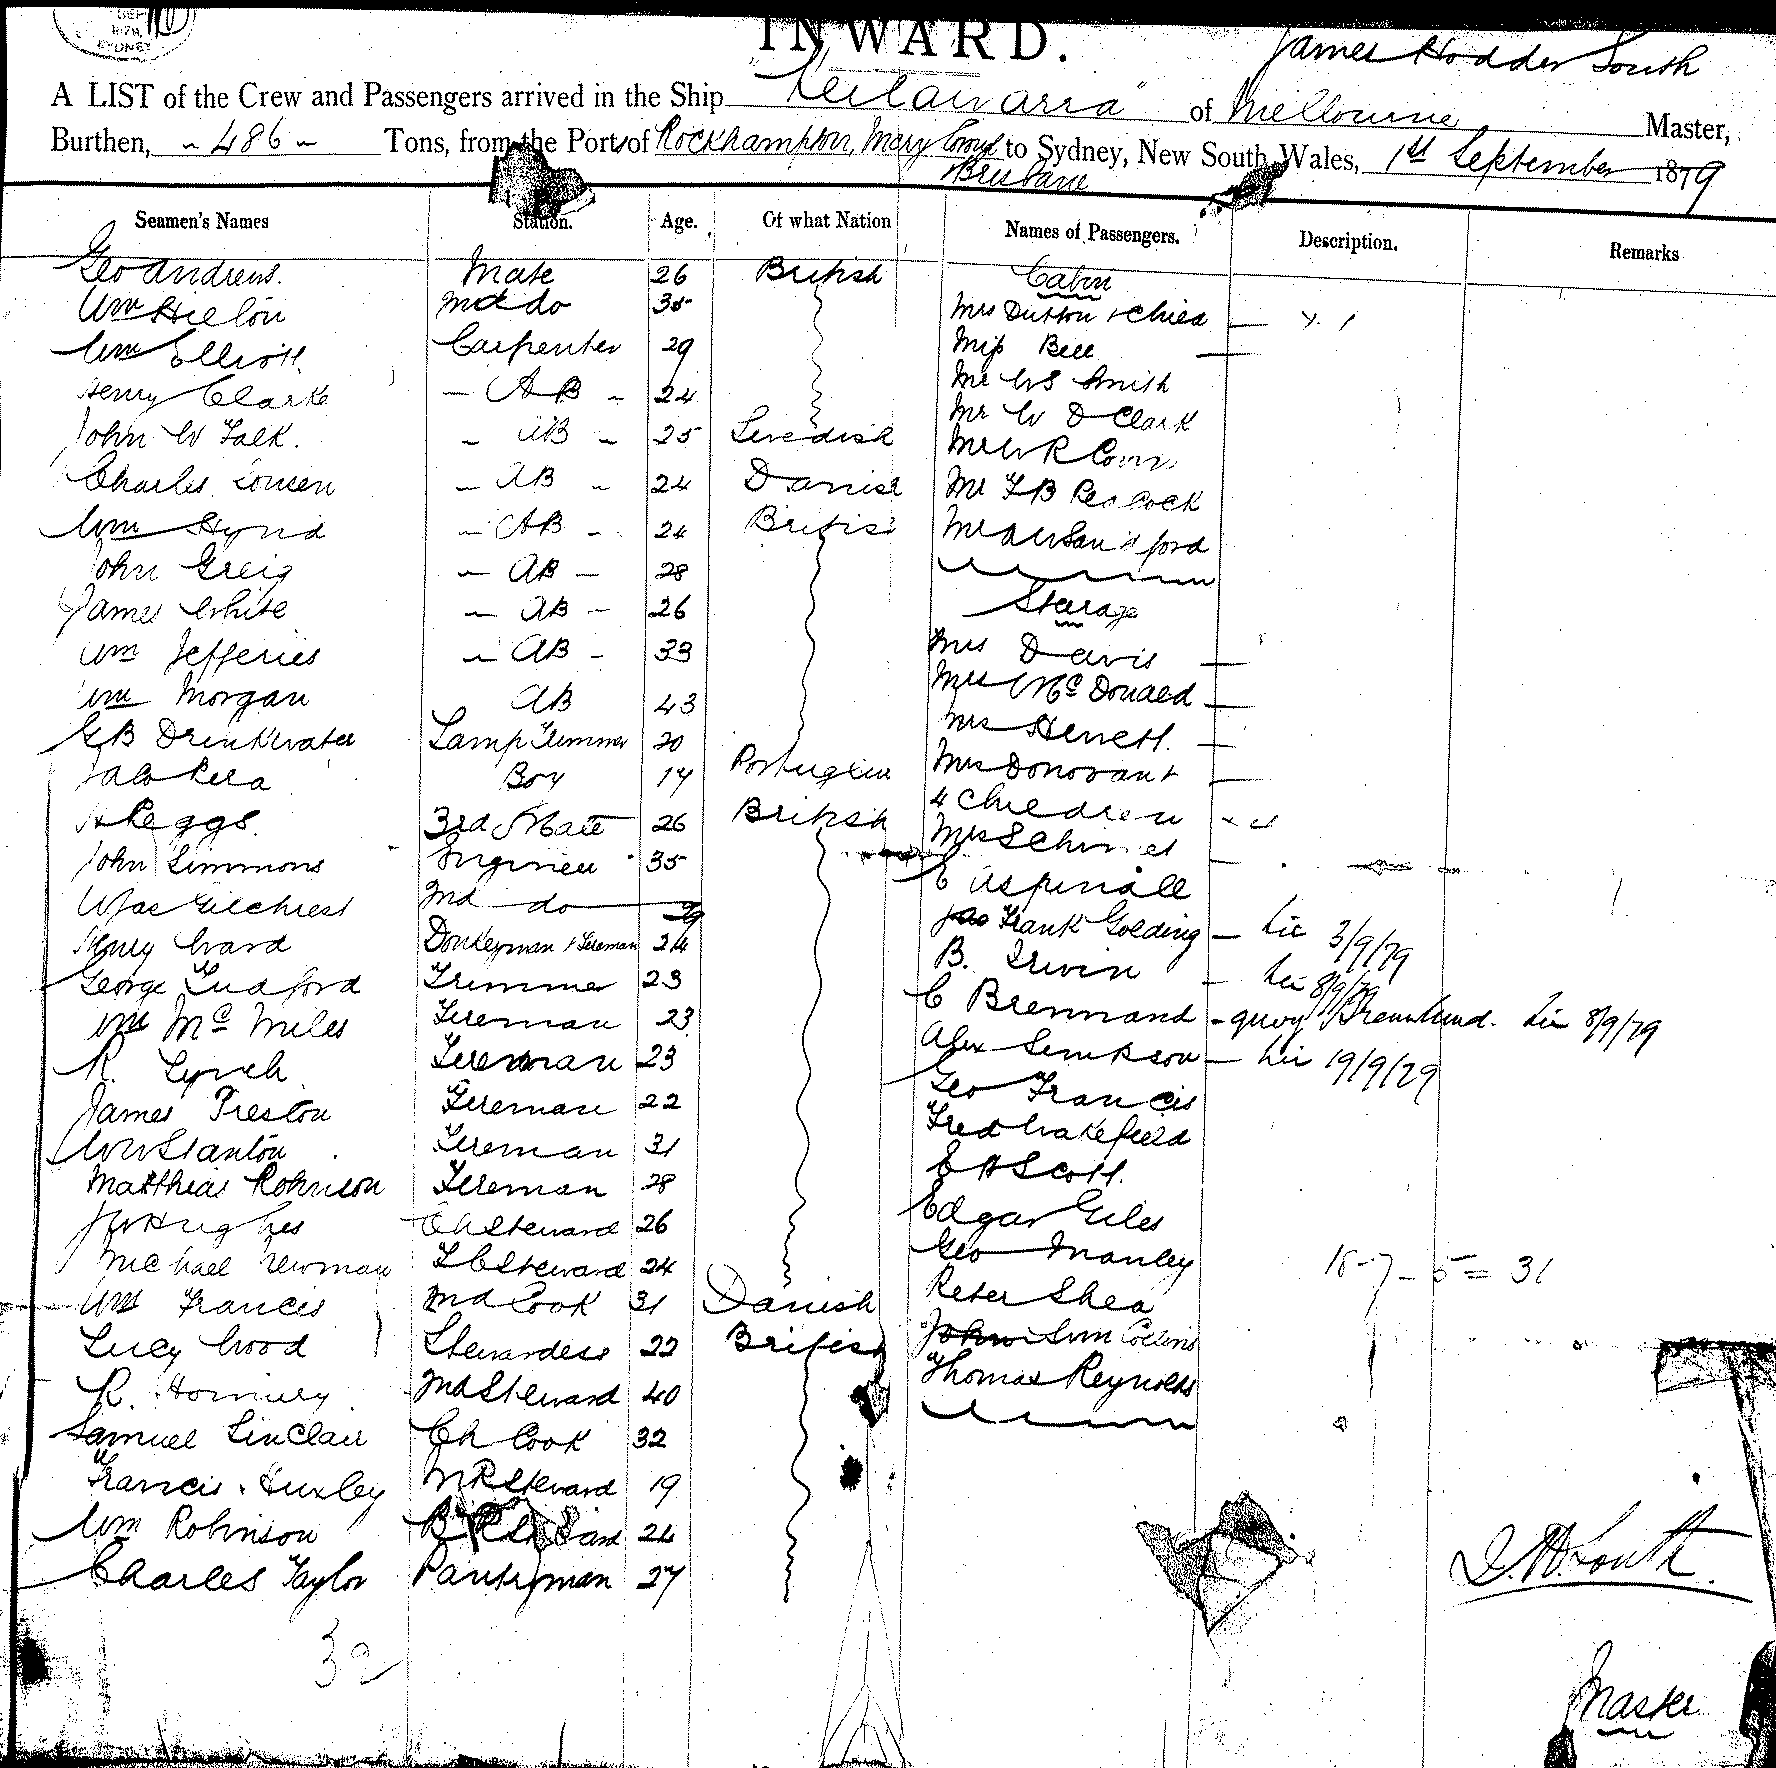 SYDNEY
INWARD.
James Hodder South
A LIST of the Crew and Passengers arrived in the Ship "Keilawarra" of Melbourne Master,
Burthen, 486 Tons, from the Port of Rockhampton, Maryboro to Sydney, New South Wales, 1st September 1879
Brisbane
Seamen's Names Station. Age. Of what Nation Names of Passengers. Description. Remarks
Geo Andrews. Mate 26 British Cabin
Wm 2nd do 35 Mrs Dutton & Child 1
Wm Elliott. Carpenter 29 Miss Bell
Henry Clarke AB 24 Mr W S Smith
John W Falk. AB 25 Swedish Mr W D Clark
Charles AB 24 Danish Mr W R
Wm Hynd AB 24 British Mr F B Peacock
John Greig AB 28 Mr Sandford
James White AB 26 Sterage
Wm Jefferies AB 33 Mrs Davis
Wm Morgan AB 43 Mrs McDonald
G B Drinkwater Lamp Trimmer 20 Mrs
Boy 17 Portuguese Mrs Donovan &
H Peggs. 3rd Mate 26 British 4 Children
John Simmons Engineer 35 Mrs
Wm Jas Gilchrist 2nd do 29 C Aspinall
Henry Ward Donkeyman & Fireman 24 Jas Frank Golding 3/9/79
George Ludford Trimmer 23 B. Irwin 8/9/79
Wm McMiles Fireman 23 C Brennand 8/9/79
R. Lynch Fireman 23 Alex Simpson 19/9/79
James Preston Fireman 22 Geo Francis
Wm Stanton Fireman 31 Fred Wakefield
Matthias Robinson Fireman 28 E H Scott.
J W Hughes Ch Steward 26 Edgar Giles
Michael Newman F C Steward 24 Geo Manley 18-7-5=31
Wm Francis 2nd Cook 31 Danish Peter Shea
Lucy Wood Stewardess 22 British John Wm Collins
R. 2nd Steward 40 Thomas Reynolds
Samuel Sinclair Ch Cook 32
Francis Huxley M R Steward 19
Wm Robinson 24
Charles Taylor Pantryman 27
J. H. South.
32
Master